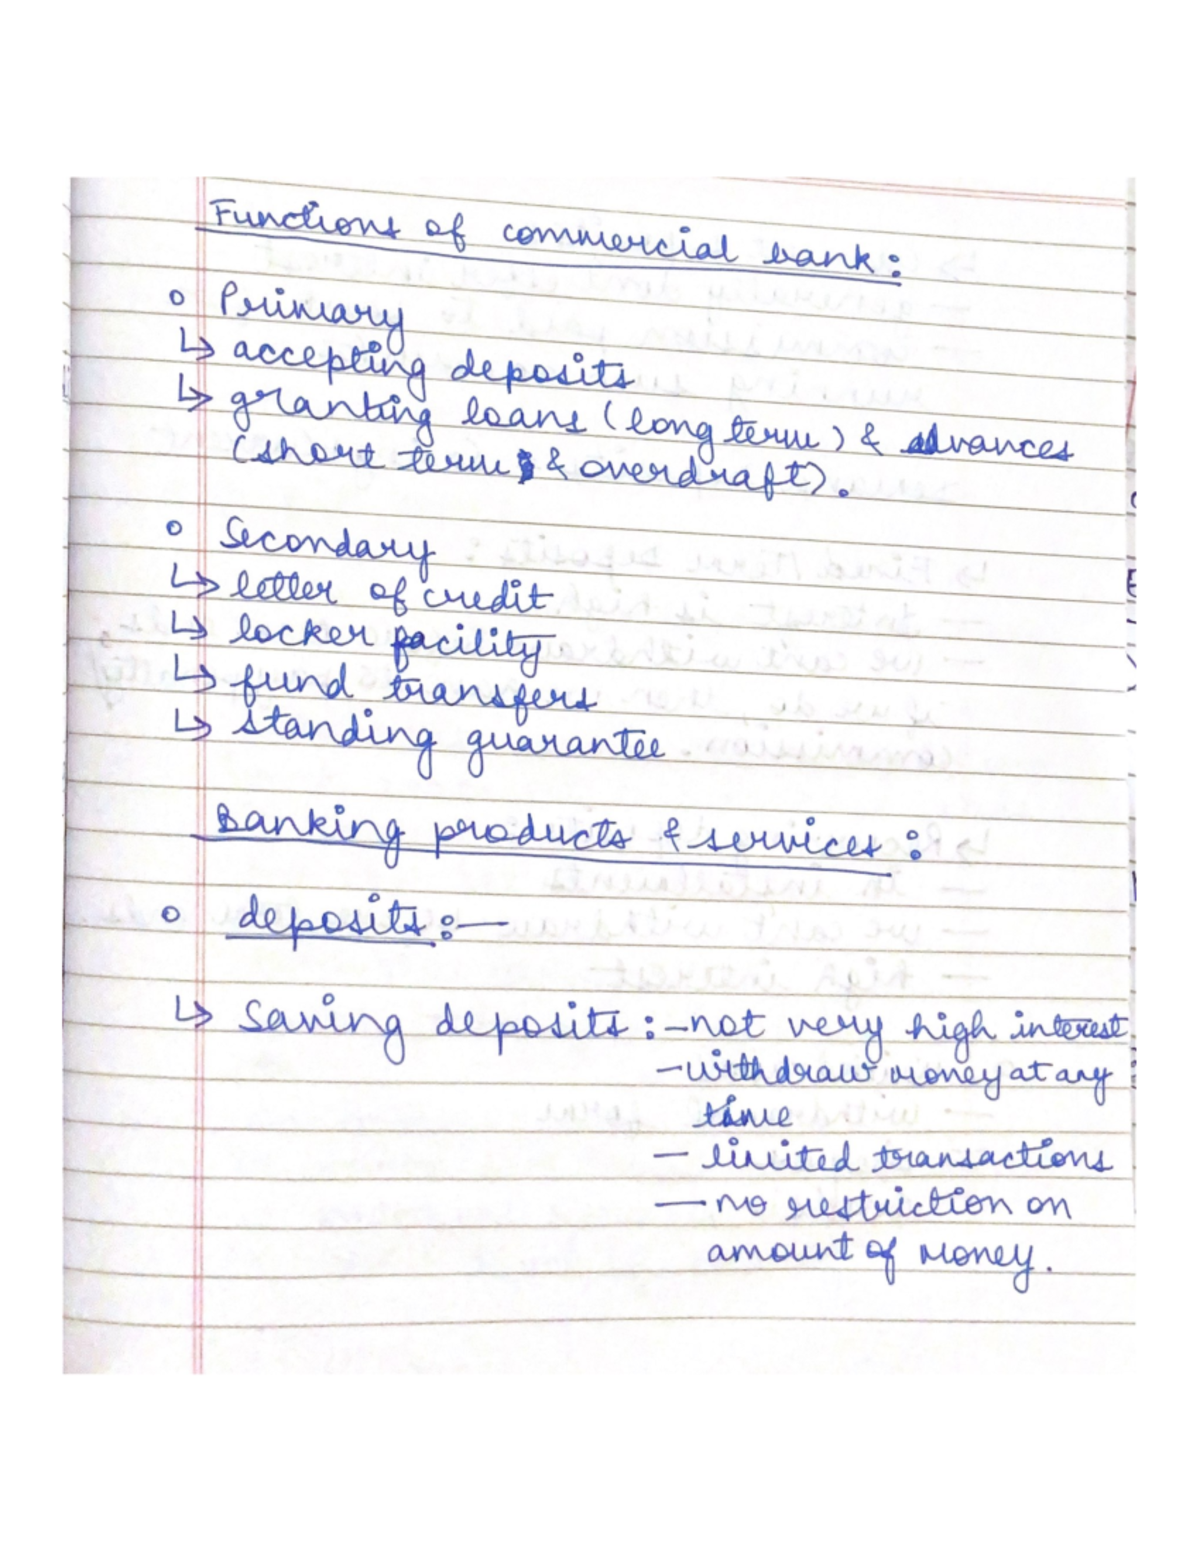 Functions of commercial bank:
o Primary
↳ accepting deposits
↳ granting loans (long term) & advances
(short term & overdraft).
o Secondary
↳ letter of credit
↳ locker facility
↳ fund transfers
↳ standing guarantee.
Banking products & services:
o deposits:—
↳ Saving deposits: - not very high interest
- withdraw money at any
time
- limited transactions
- no restriction on
amount of money.